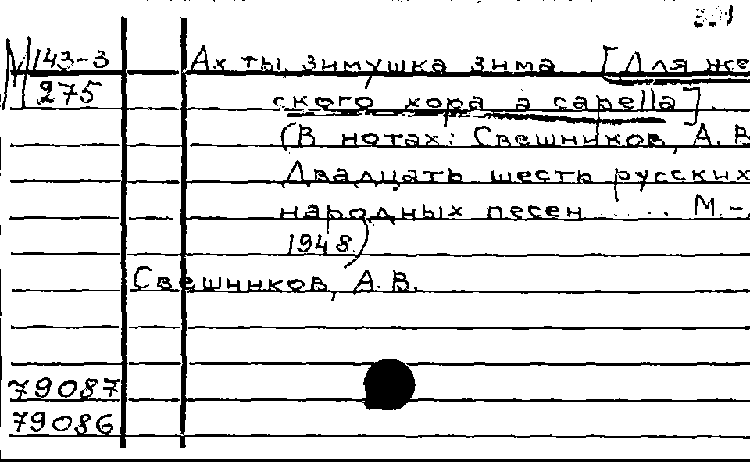 М 143-3
275
Ах ты, зимушка зима. [Для же
ского хора a capella].
(В нотах: Свешников, А. В
Двадцать шесть русских
народных песен ..... М.-
1948.)
Свешников, А. В.
79087
79086